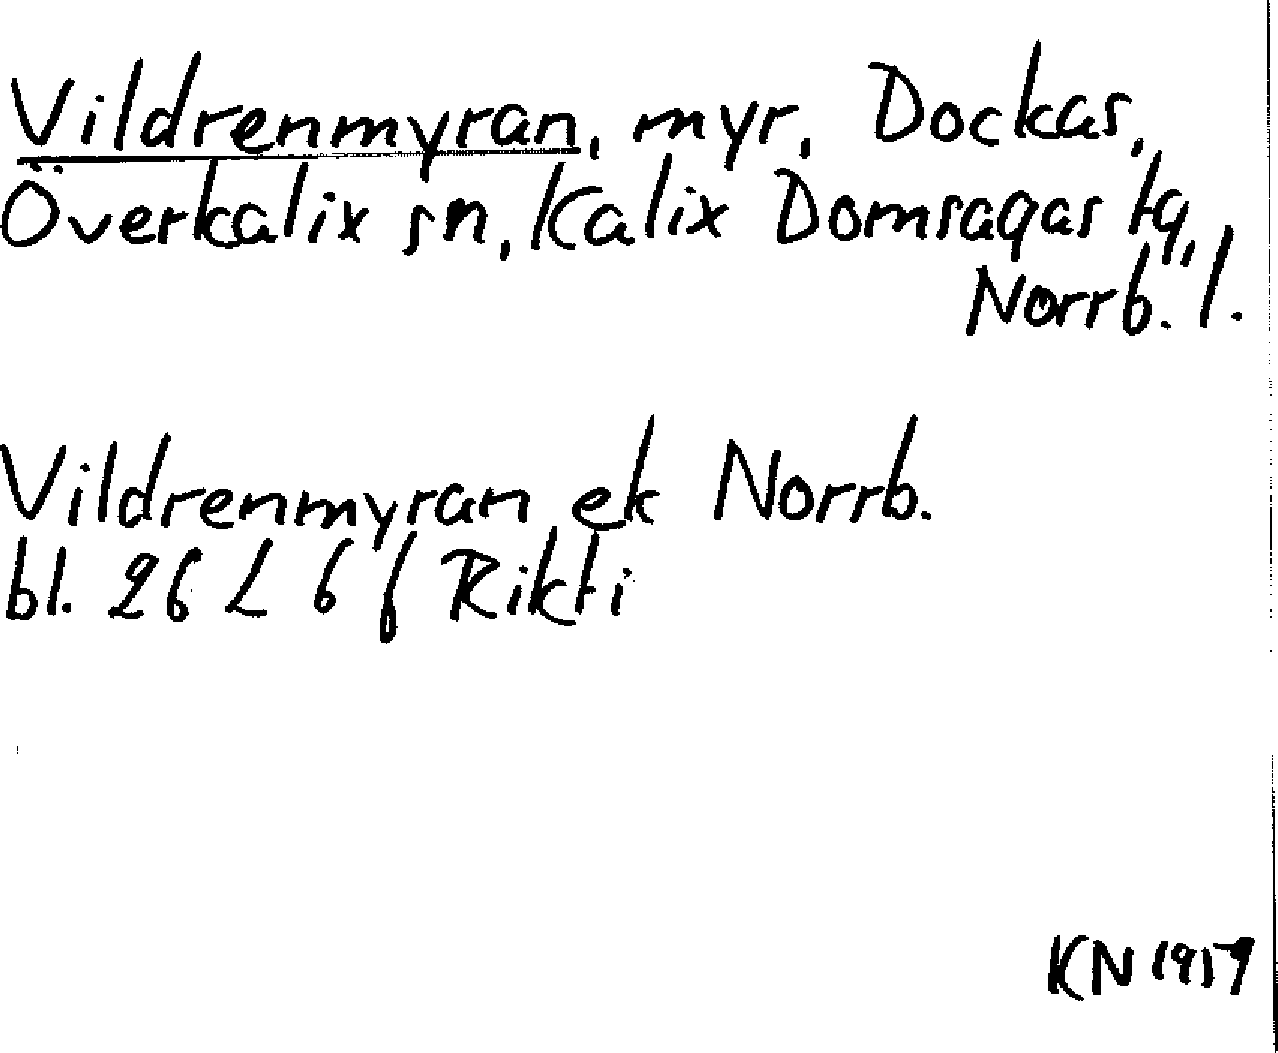 Vildrenmyran, myr, Dockas,
Överkalix sn, Kalix Domsagas tg,
Norrb. l.
Vildrenmyran ek Norrb.
bl. 26 L 6 f Rikti
KN